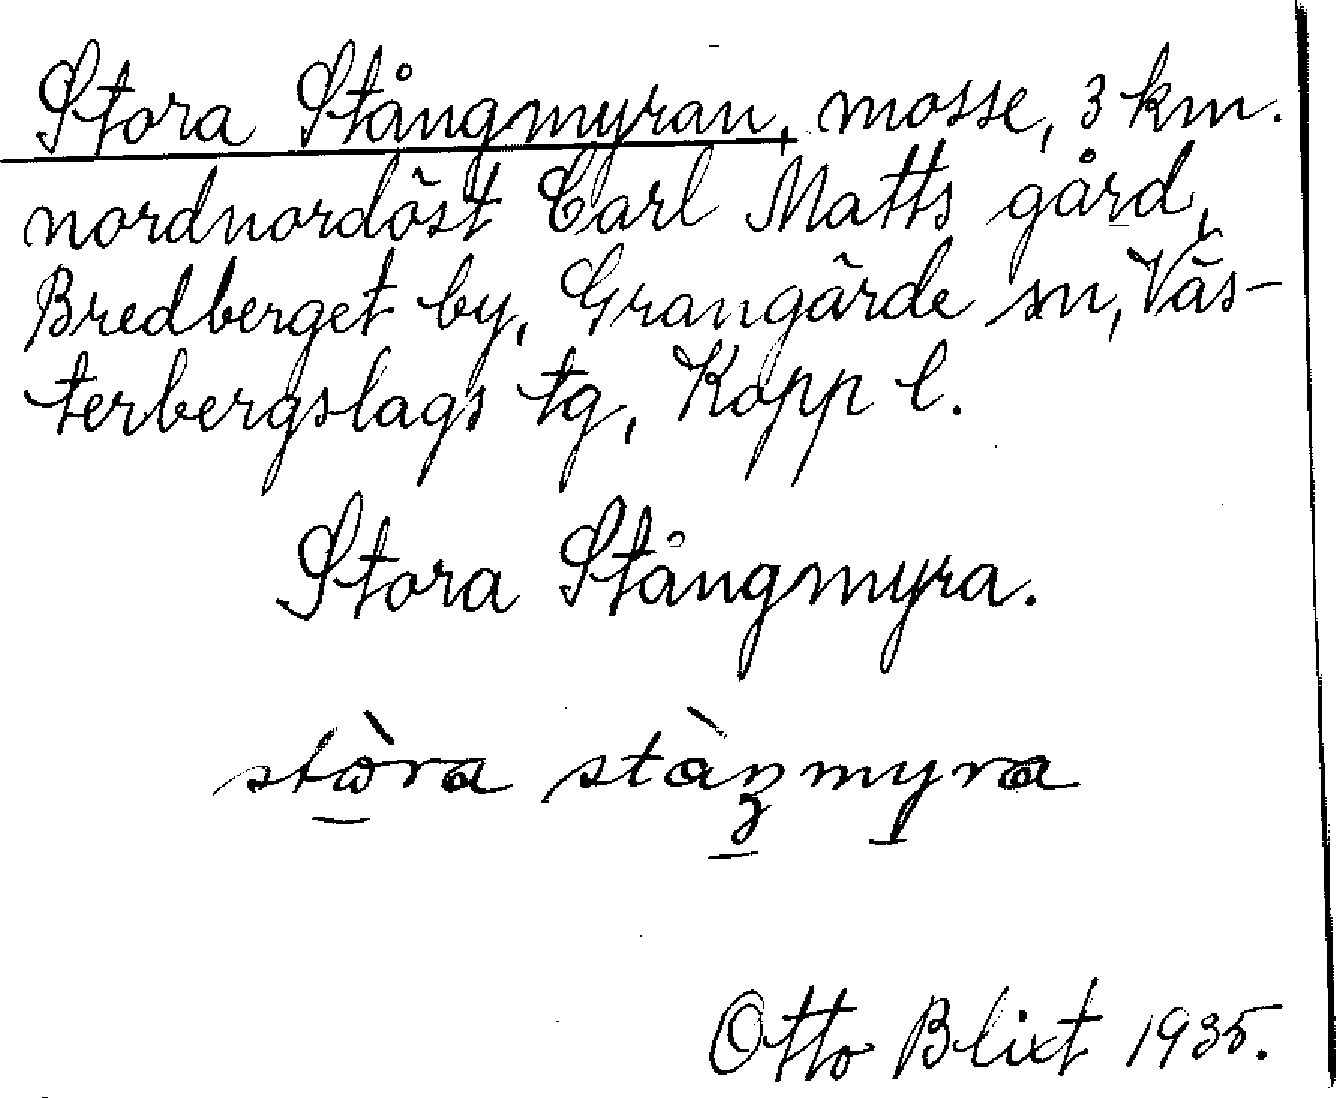 Stora Stångmyran, mosse, 3 km.
nordnordöst Carl Matts gård,
Bredberget by, Grangärde sn, Väs-
terbergslags tg, Kopp l.
Stora Stångmyra.
stɷ̀ra stàŋmyra
Otto Blixt 1935.